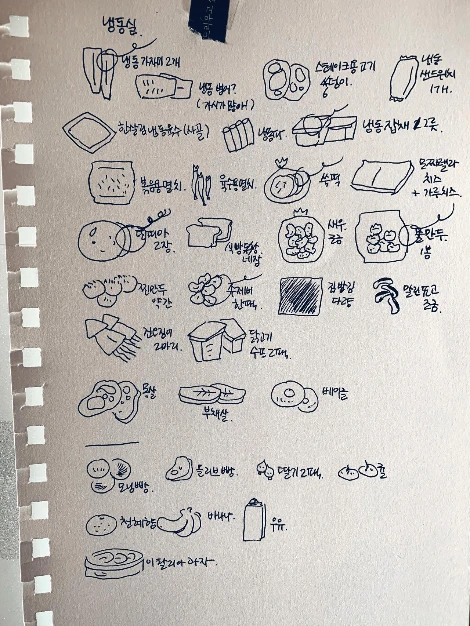 냉동실.
냉동 가자미 2개
냉동 병어?
(가시가 많아!)
스테이크용 고기
쌍덩이.
냉동
샌드위치
1개.
한살림 냉동육수 (사골)
냉동
냉동잡채 2곳.
볶음용멸치.
육수용멸치.
쑥떡
모짜렐라
치즈
+ 가루치즈.
또띠아
2장.
식빵
네장
새우.
조금
물만두.
찐만두
약간
수제비
한팩.
김말림
다량
말린표고
조금.
2마리.
닭고기
수프 2팩.
통살
부채살.
베이글
모닝빵.
올리브빵.
딸기 2팩.
귤
천혜향
바나나.
우유.
이탈리아 과자.